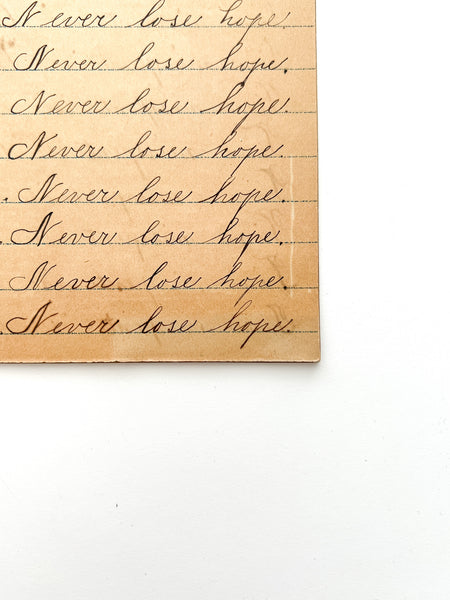 Never lose hope.
Never lose hope.
Never lose hope.
Never lose hope.
. Never lose hope.
. Never lose hope.
Never lose hope.
. Never lose hope.